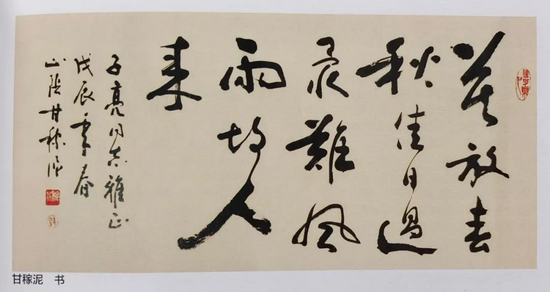 莫放春
秋佳日過
最難風
雨故人
来
子亮同志雅正
戊辰季春
甘稼泥
甘稼泥 书